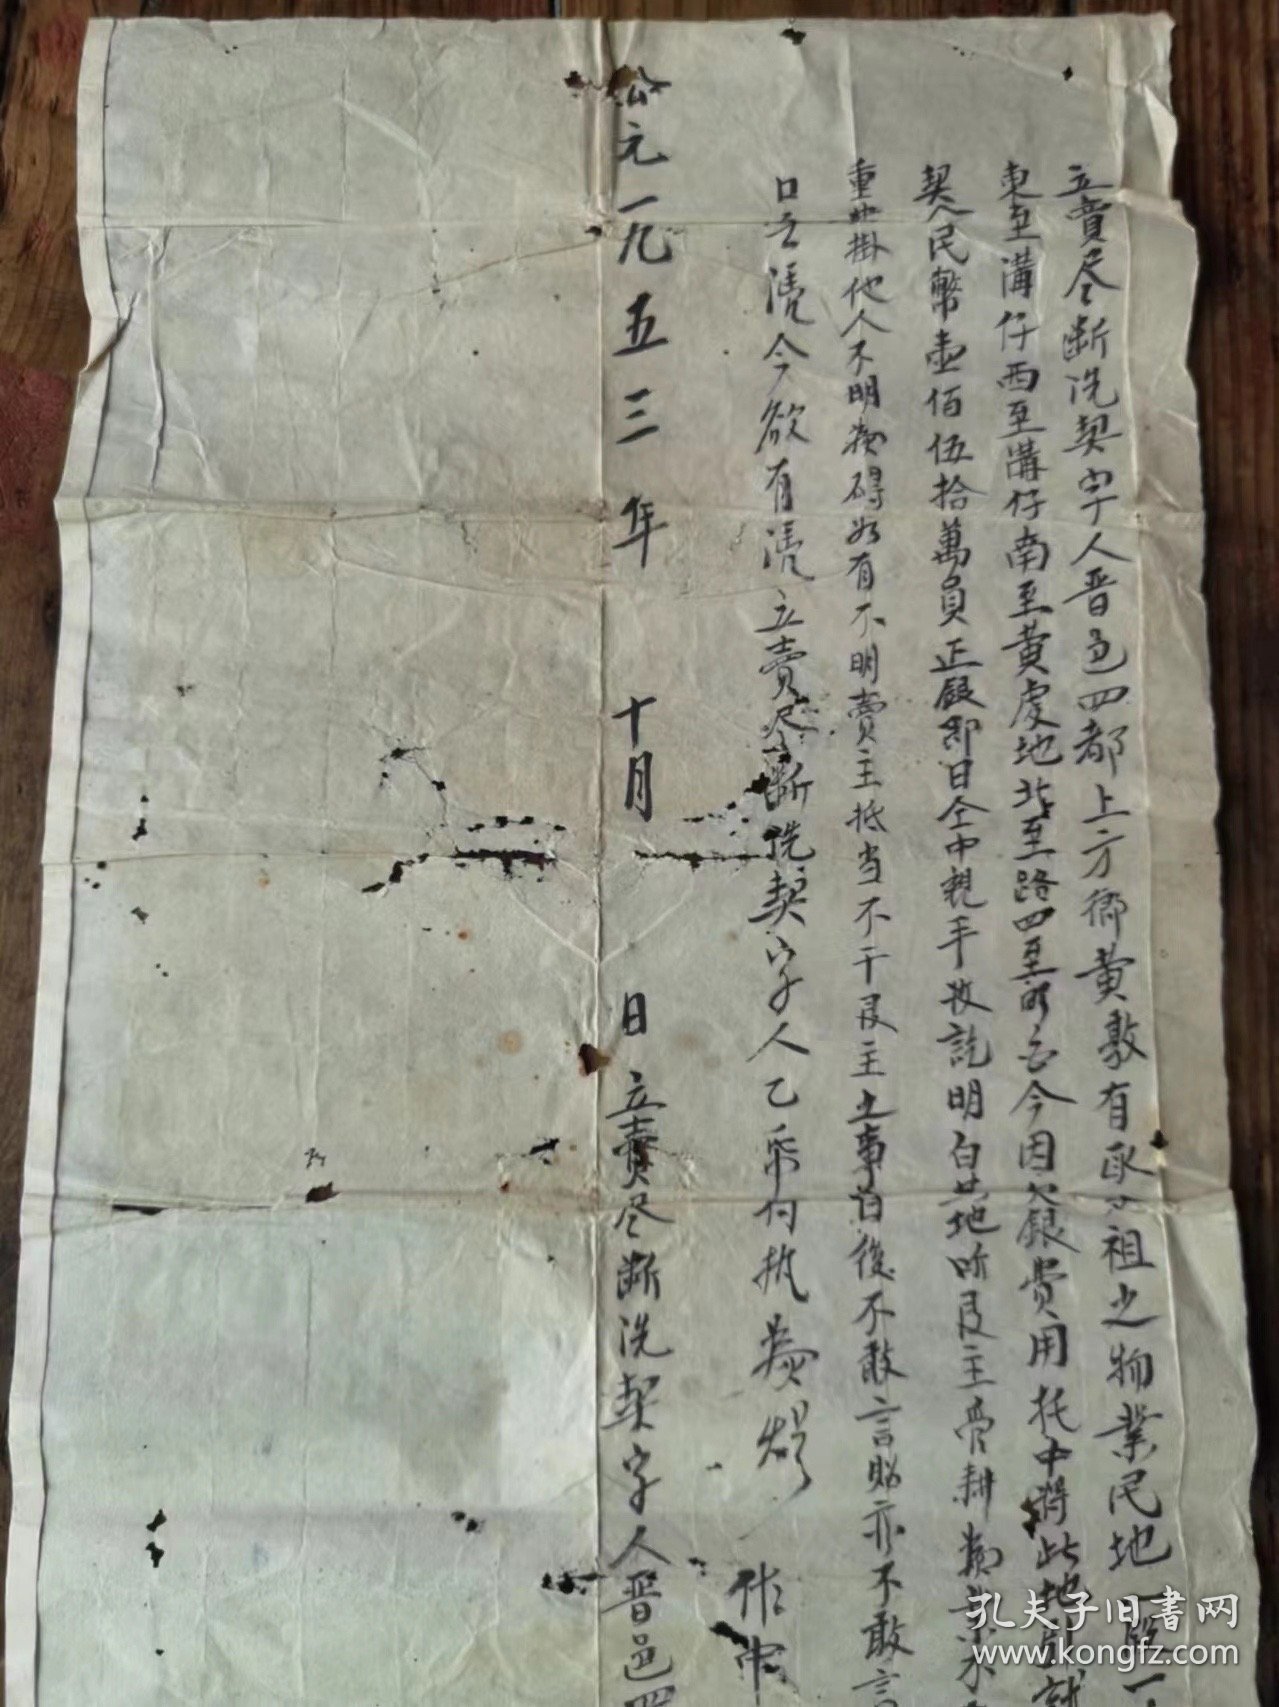 立賣尽断洗契字人晋邑四都上方鄉黄敦有承父祖之物業民地一段一
東至溝仔西至溝仔南至黄處地北至路四至明白今因欠銀費用托中將此地就
契人民幣壹佰伍拾萬員正銀即日仝中親手收訖明白其地听艮主管耕
重典掛他人不明為碍如有不明賣主抵当不干艮主之事日後不敢言贴亦不敢言
口无凴今欲有凴立賣尽断洗契字人乙帋付执為炤
作中
公元一九五三年 十月 日立賣尽断洗契字人晋邑四
孔夫子旧书网
www.kongfz.com